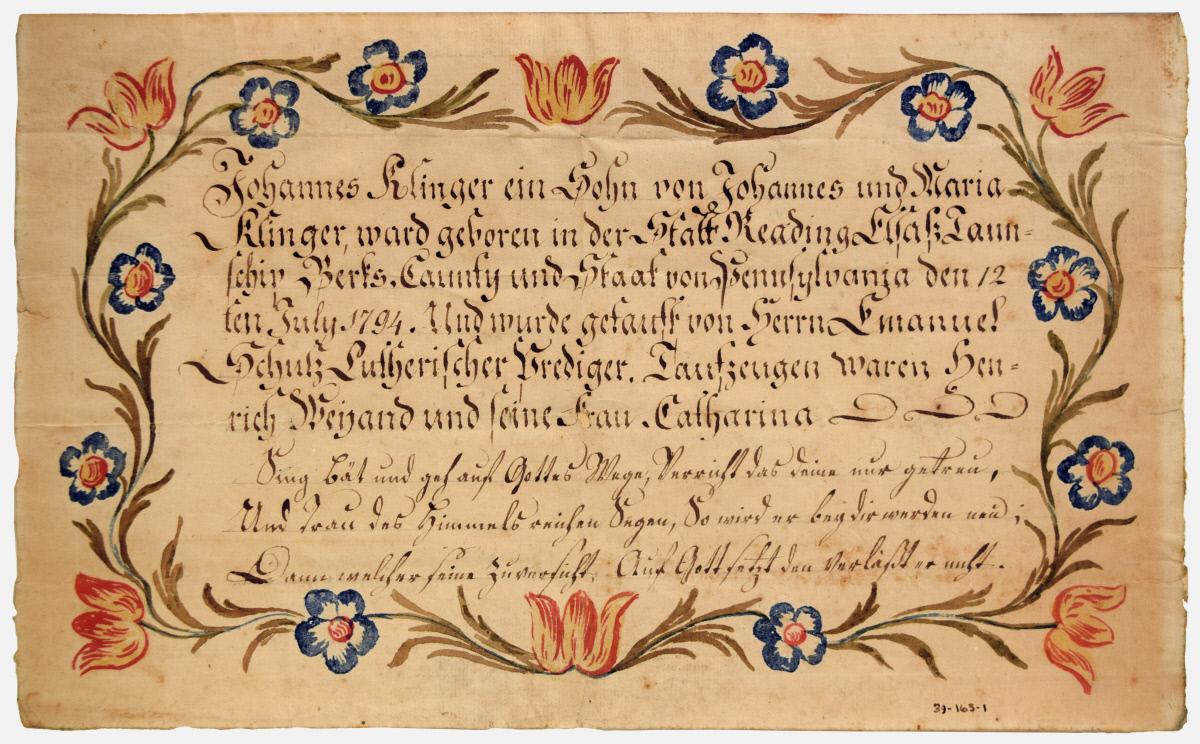 Johannes Klinger ein Sohn von Johannes und Maria
Klinger, ward geboren in der Statt Reading Elsaß Taun-
schip Berks. Caunty und Staat von Pennsylvania den 12
ten July 1794. Und wurde getauft von Herrn Emanuel
Schulz Lutherischer Prediger. Taufzeugen waren Hen-
rich Weyand und seine Frau Catharina
Sing bät und geh auf Gottes Wege, Verricht das deine nur getreu,
Und Trau des Himmels reichen Segen, So wird er bey dir werden neu;
Dann welcher seine Zuversicht. Auf Gott setzt den verläßt er nicht.
39-165-1